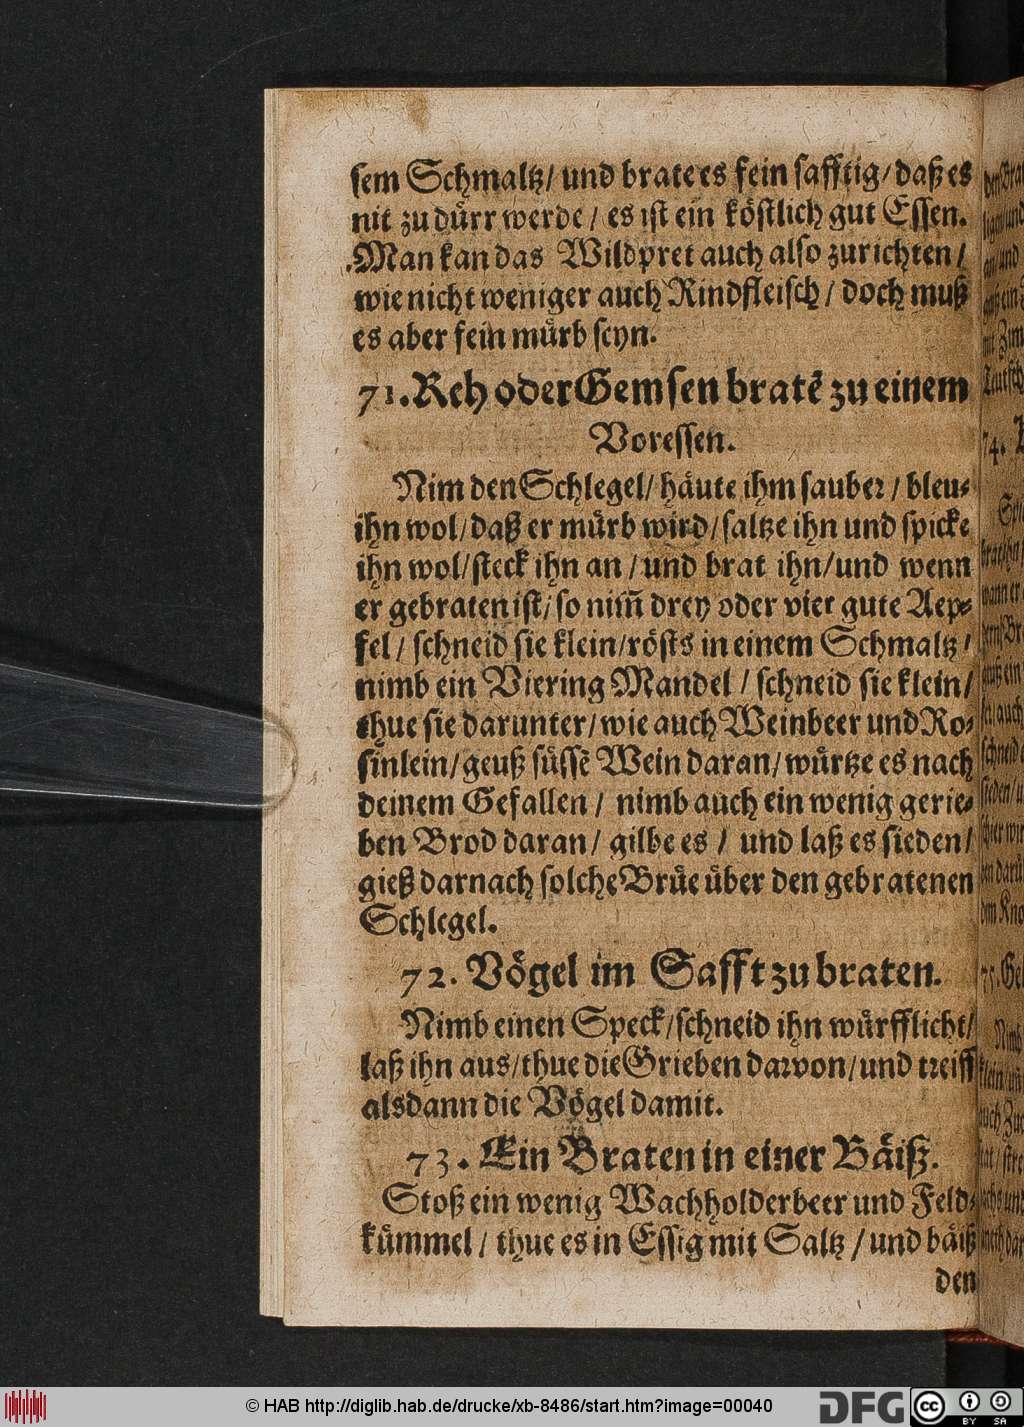 sem Schmaltz/ und brate es fein safftig/ daß es
nit zu dürr werde/ es ist ein köstlich gut Essen.
Man kan das Wildpret auch also zurichten/
wie nicht weniger auch Rindfleisch/ doch muß
es aber fein mürb seyn.
71. Reh oder Gemsen bratẽ zu einem
Voressen.
Nim den Schlegel/ häute ihm sauber/ bleu-
ihn wol/ daß er mürb wird/ saltze ihn und spicke
ihn wol/ steck ihn an/ und brat ihn/ und wenn
er gebraten ist/ so nim̃ drey oder vier gute Aep-
fel/ schneid sie klein/ rösts in einem Schmaltz/
nimb ein Viering Mandel/ schneid sie klein/
thue sie darunter/ wie auch Weinbeer und Ro-
sinlein/ geuß süssẽ Wein daran/ würtze es nach
deinem Gefallen/ nimb auch ein wenig gerie-
ben Brod daran/ gilbe es/ und laß es sieden/
gieß darnach solche Brüe über den gebratenen
Schlegel.
72. Vögel im Safft zu braten.
Nimb einen Speck/ schneid ihn würfflicht/
laß ihn aus/ thue die Grieben darvon/ und treiff
alsdann die Vögel damit.
73. Ein Braten in einer Bäiß.
Stoß ein wenig Wachholderbeer und Feld-
kümmel/ thue es in Essig mit Saltz/ und bäiß
den
© HAB http://diglib.hab.de/drucke/xb-8486/start.htm?image=00040
DFG
cc
BY SA